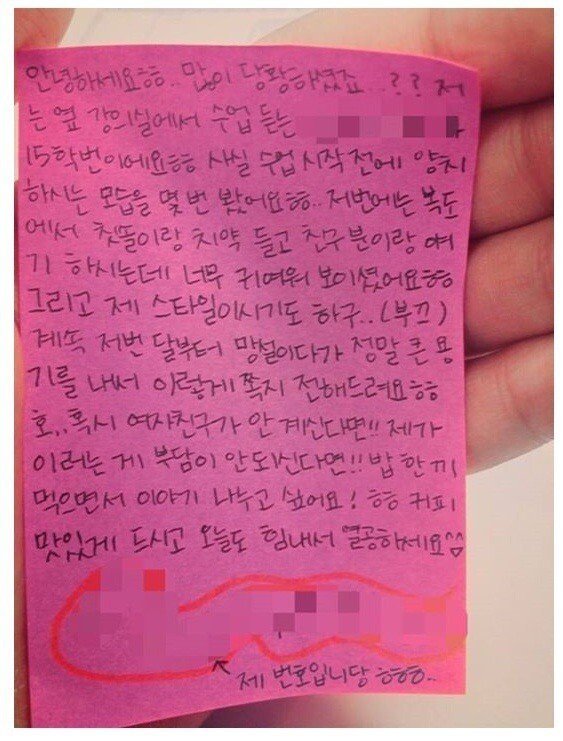 안녕하세요ㅎㅎ.. 많이 당황하셨죠...?? 저
는 옆 강의실에서 수업 듣는
15학번이에요ㅎㅎ 사실 수업 시작 전에 양치
하시는 모습을 몇 번 봤어요ㅎㅎ.. 저번에는 복도
에서 칫똘이랑 치약 들고 친구분이랑 얘
기 하시는데 너무 귀여워 보이셨어요ㅎㅎ
그리고 제 스타일이시기도 하구..(부끄)
계속 저번 달부터 망설이다가 정말 큰 용
기를 내서 이렇게 쪽지 전해드려요ㅎㅎ
호,,혹시 여자친구가 안 계신다면!! 제가
이러는 게 부담이 안되신다면!! 밥 한끼
먹으면서 이야기 나누고 싶어요! ㅎㅎ 커피
맛있게 드시고 오늘도 힘내서 열공하세요^^
제 번호입니당 ㅎㅎㅎ..